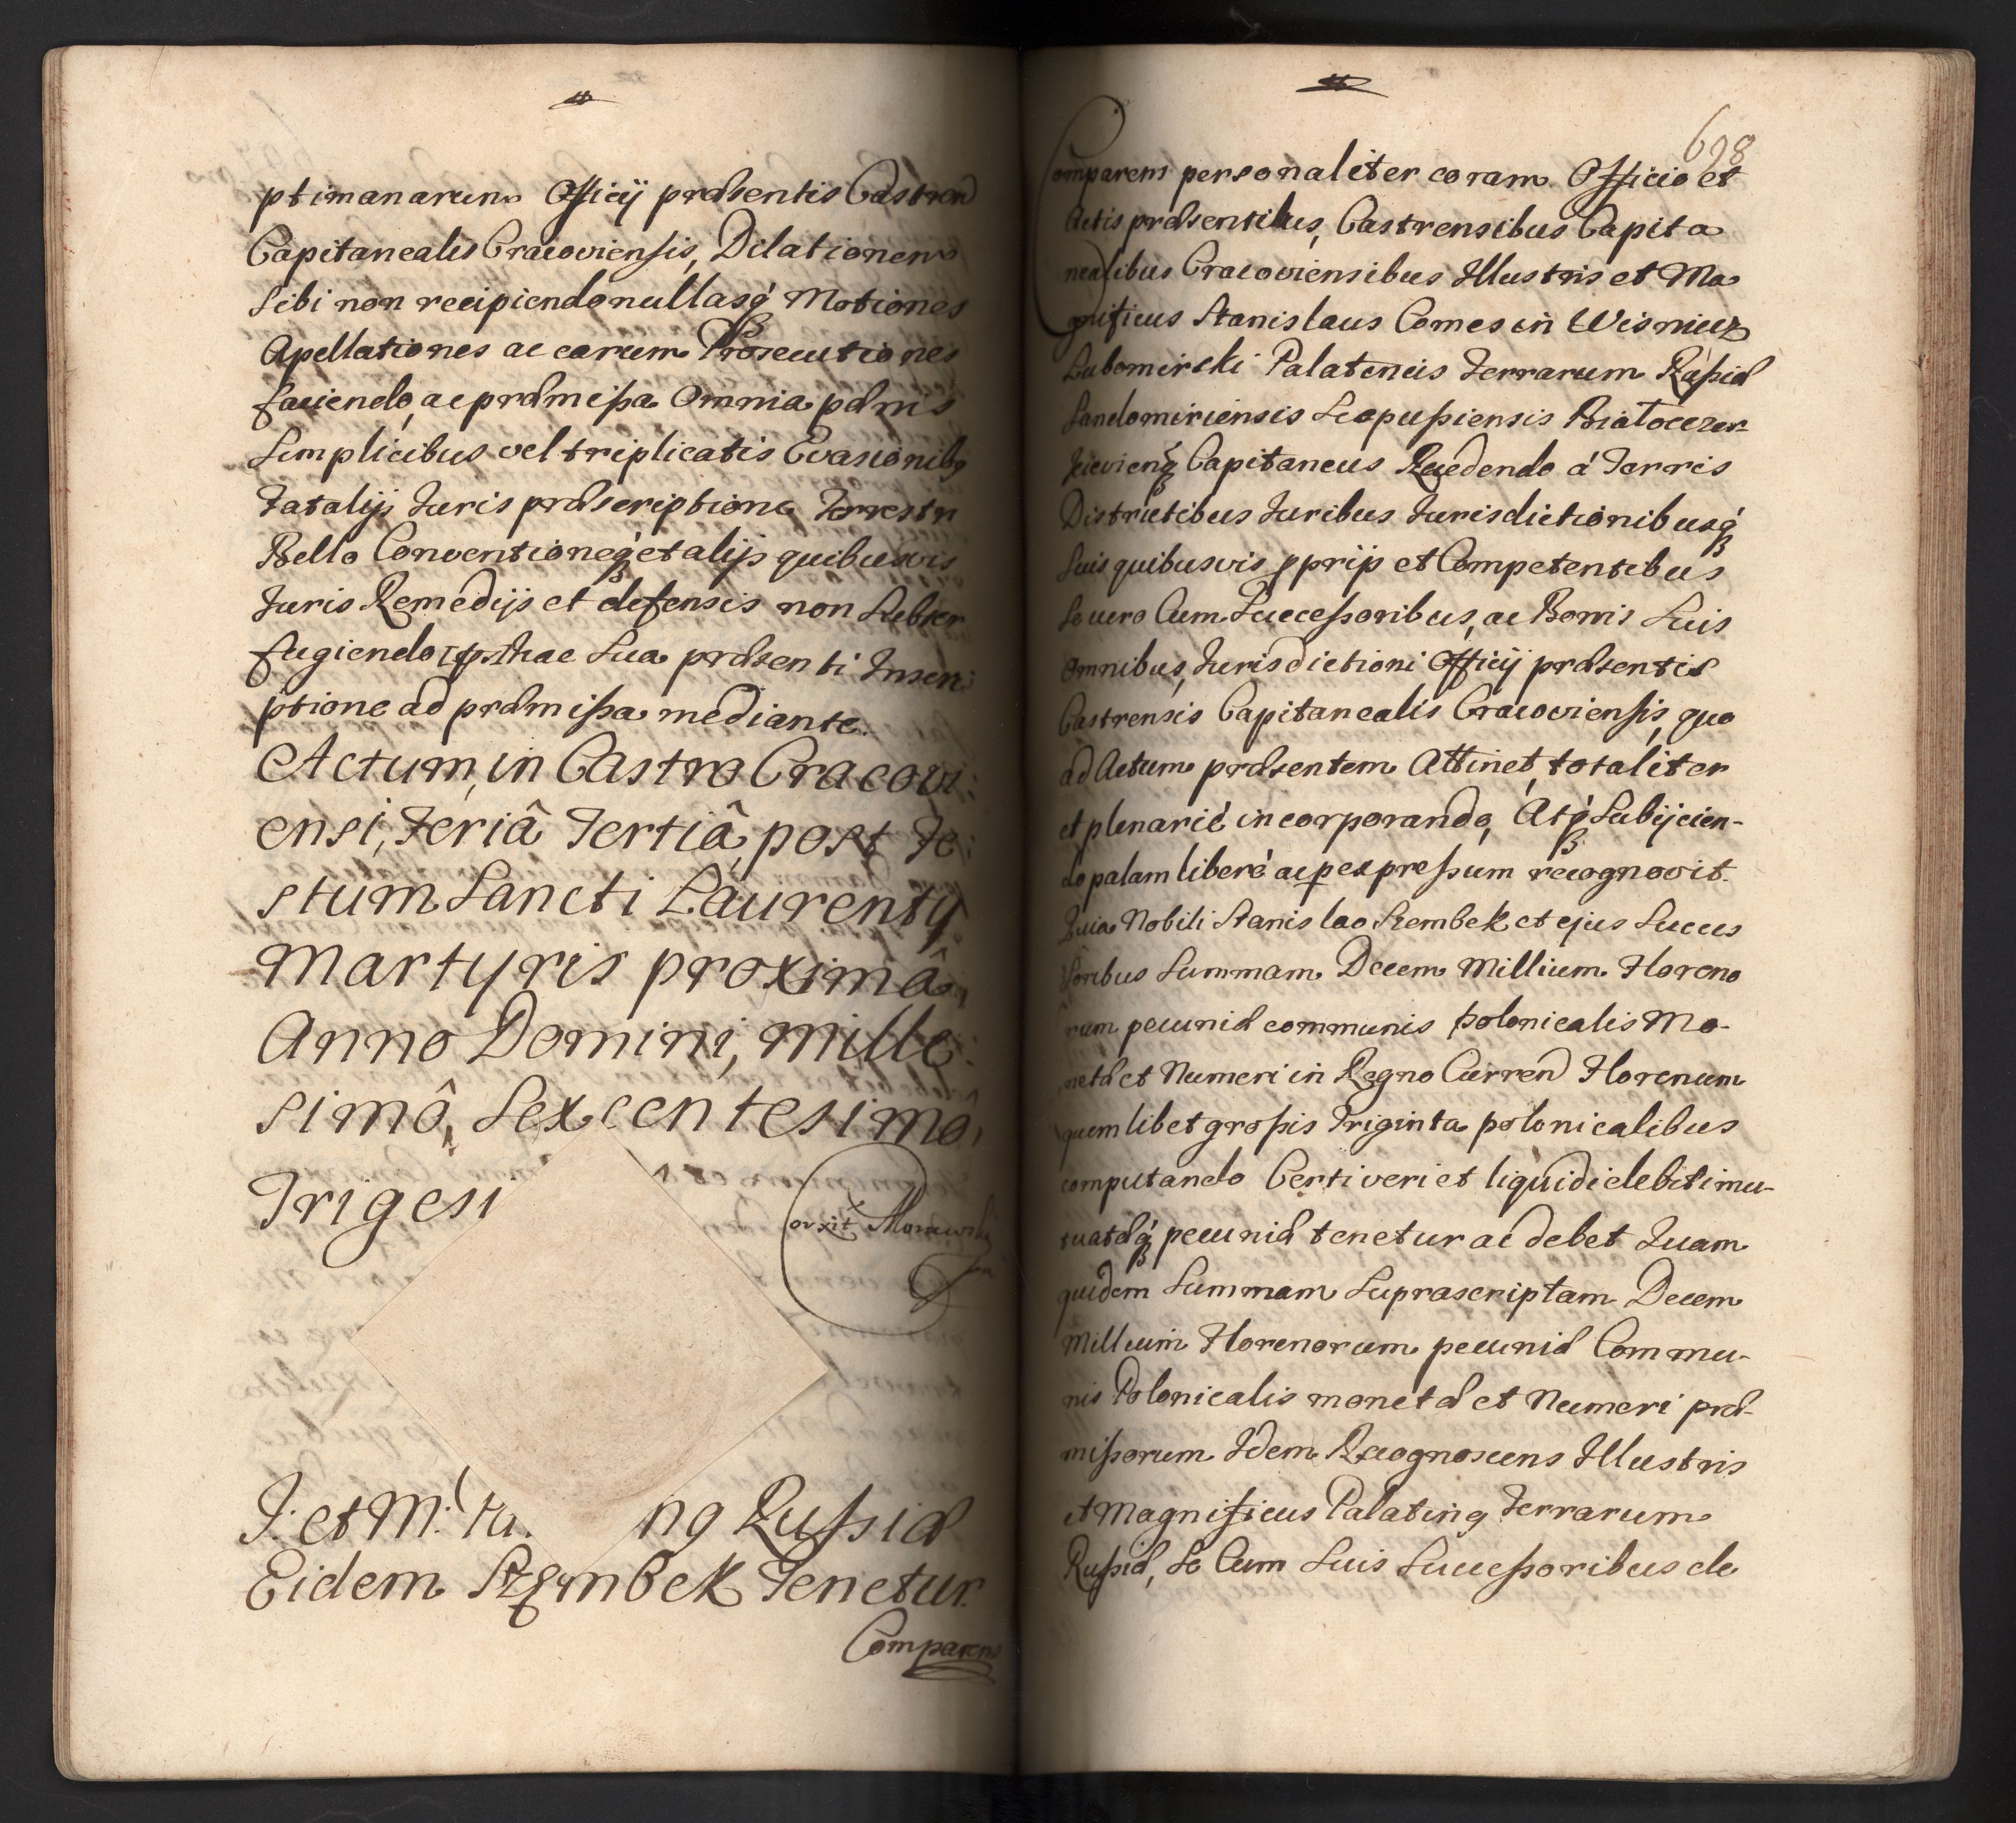 ptimanarum Officÿ præsentis Castren
Capitanealis Cracoviensis, Dilationem
Sibi non recipiendo nullasq́ Motiones
Apellationes ac earum Prosecutiones
faciendo, ac præmissa Omnia
Simplicibus vel triplicatis Evasionibq
Fatalijs Juris præscriptione Terrestri
Bello Conventioneq́ et alijs quibusvis
Juris Remedijs et defensis non Subter
fugiendo hac Sua præsenti Inscri
ptione ad præmissa mediante.
Actum, in Castro Cracovi
ensi, Feriâ Tertiâ, post Fe
stum Sancti Laurentÿ
Martyris proximâ,
Anno Domini, mille
simô, Sexcentesimô,
Trigesi
orxit Morawski
J: et M:
nq Russiæ
Eidem Szembek Tenetur.
Comparens
698
Comparens personaliter coram Officio et
Actis præsentibus, Castrensibus Capita
nealibus Cracoviensibus Illustris et Ma
gnificus Stanislaus Comes in Wisnicz
Lubomirski Palatinus Terrarum Russiæ
Sandomiriensis Scepusiensis Białocer
Capitaneus Recedendo á Terris
Districtibus Juribus Jurisdictionibusq́
Suis quibusvis pprijs et Competentibus
Se vero Cum Successoribus, ac Bonis Suis
Omnibus, Jurisdictioni Officÿ præsentis
Castrensis Capitanealis Cracoviensis, quo
ad Actum præsentem Attinet, totaliter
et plenarié incorporando, Atq́ Subijcien-
do palam liberé ac per expressum recognovit.
Quia Nobili Stanislao Szembek et ejus Succes
soribus Summam Decem Millium Floreno
rum pecuniæ communis polonicalis Mo-
netæ et Numeri in Regno Curren Florenum
quemlibet grossis Triginta polonicalibus
computando Certi veri et liquidi debiti mu-
tuatæq́ pecuniæ tenetur ac debet Quam
quidem Summam Suprascriptam Decem
Millium Florenorum pecuniæ Commu-
nis Polonicalis monetæ et Numeri præ-
missorum Idem Recognoscens Illustris
et Magnificus Palatinq Terrarum
Russiæ, Se Cum Suis Successoribus de